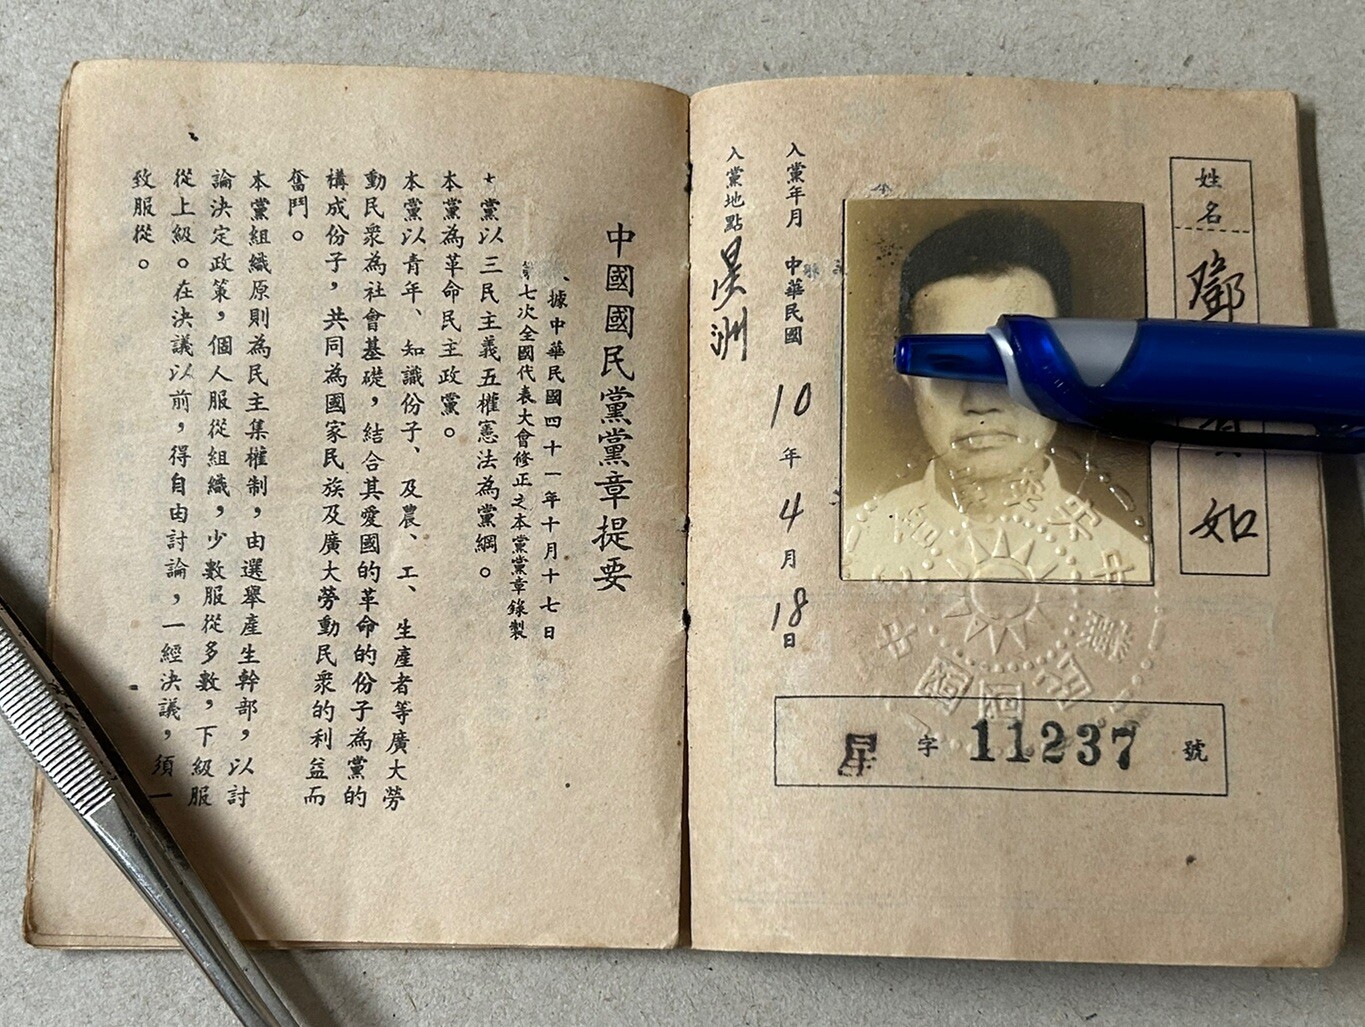 姓名 鄧 如
入黨年月 中華民國 10 年 4 月 18 日
入黨地點 星洲
星 字 11237 號
中國國民黨黨章提要
據中華民國四十一年十月十七日
第七次全國代表大會修正之本黨黨章錄製
本黨以三民主義五權憲法為黨綱。
本黨為革命民主政黨。
本黨以青年、知識份子、及農、工、生產者等廣大勞
動民眾為社會基礎，結合其愛國的革命的份子為黨的
構成份子，共同為國家民族及廣大勞動民眾的利益而
奮鬥。
本黨組織原則為民主集權制，由選舉產生幹部，以討
論決定政策，個人服從組織，少數服從多數，下級服
從上級。在決議以前，得自由討論，一經決議，須一
致服從。